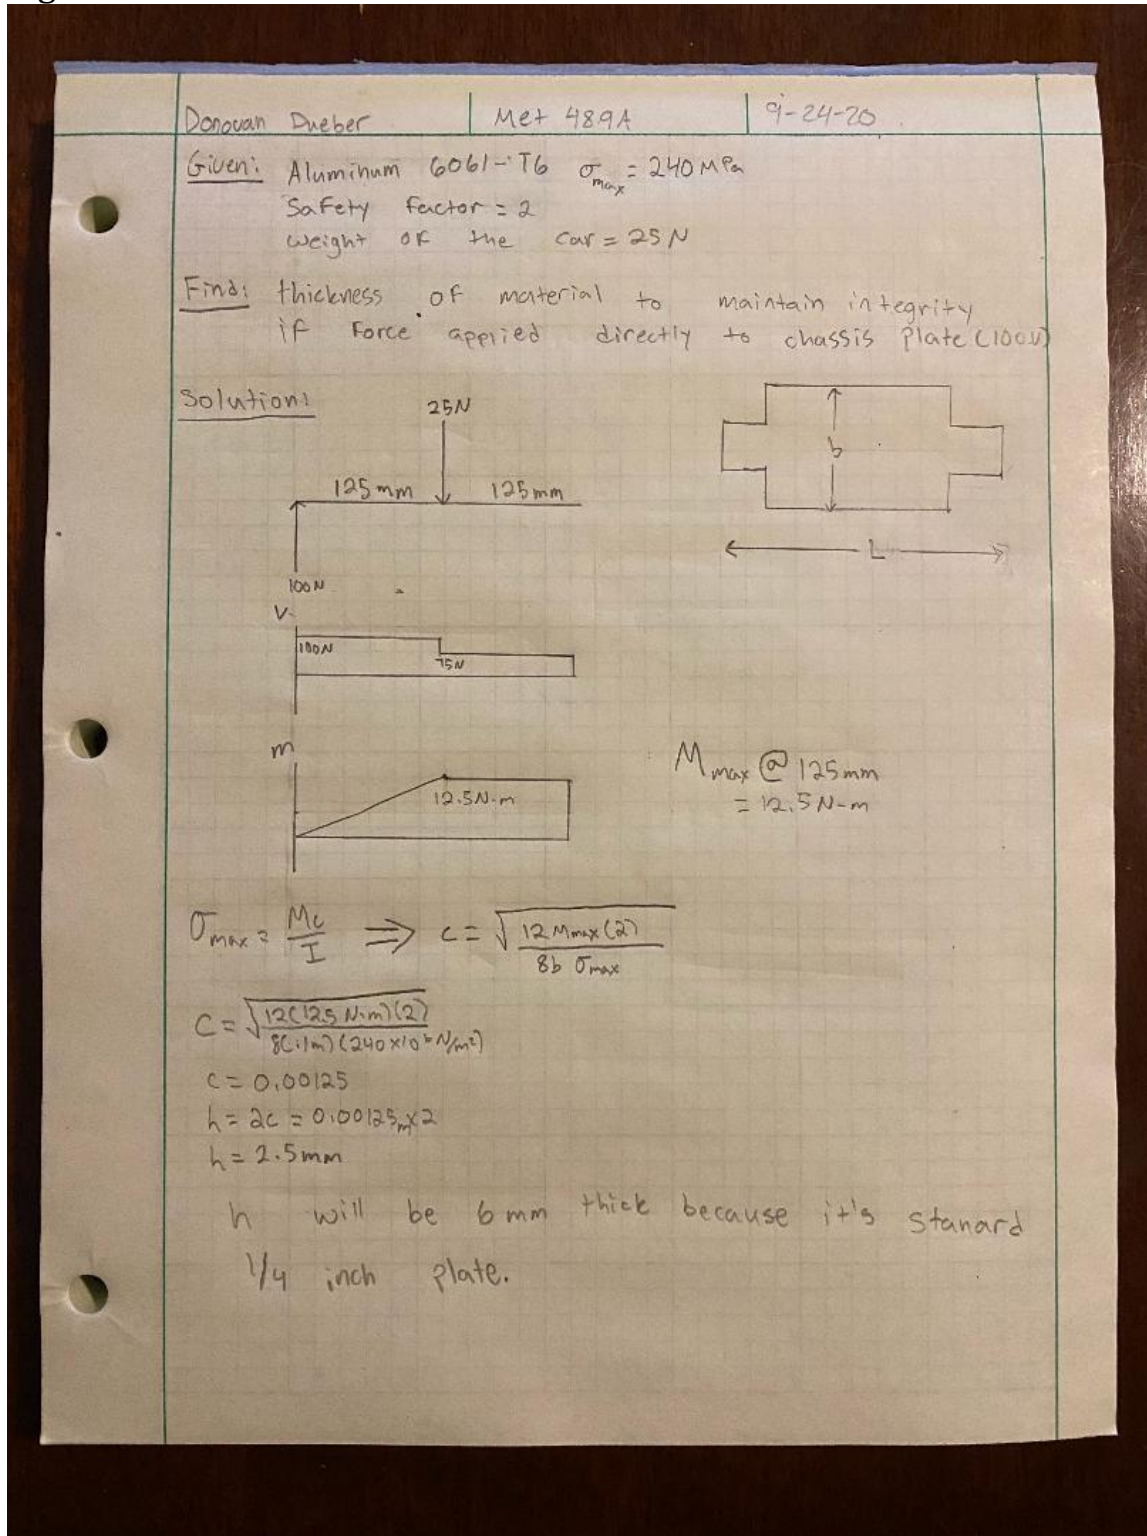 Donovan Dueber Met 489A 9-24-20
Given: Aluminum 6061-T6 σmax = 240 MPa
Safety factor = 2
weight of the car = 25 N
Find: thickness of material to maintain integrity
if Force applied directly to chassis plate (100N)
Solution:
25N
b
125mm 125mm
L
100N
V
100N
75N
m
12.5N-m
Mmax @ 125mm
= 12.5 N-m
σmax = Mc/I ⇒ c = √(12 Mmax(2) / 8b σmax)
C = √(12(12.5 N·m)(2) / 8(.1m)(240×10⁶ N/m²))
c = 0.00125
h = 2c = 0.00125m×2
h = 2.5mm
h will be 6mm thick because it's stanard
1/4 inch plate.